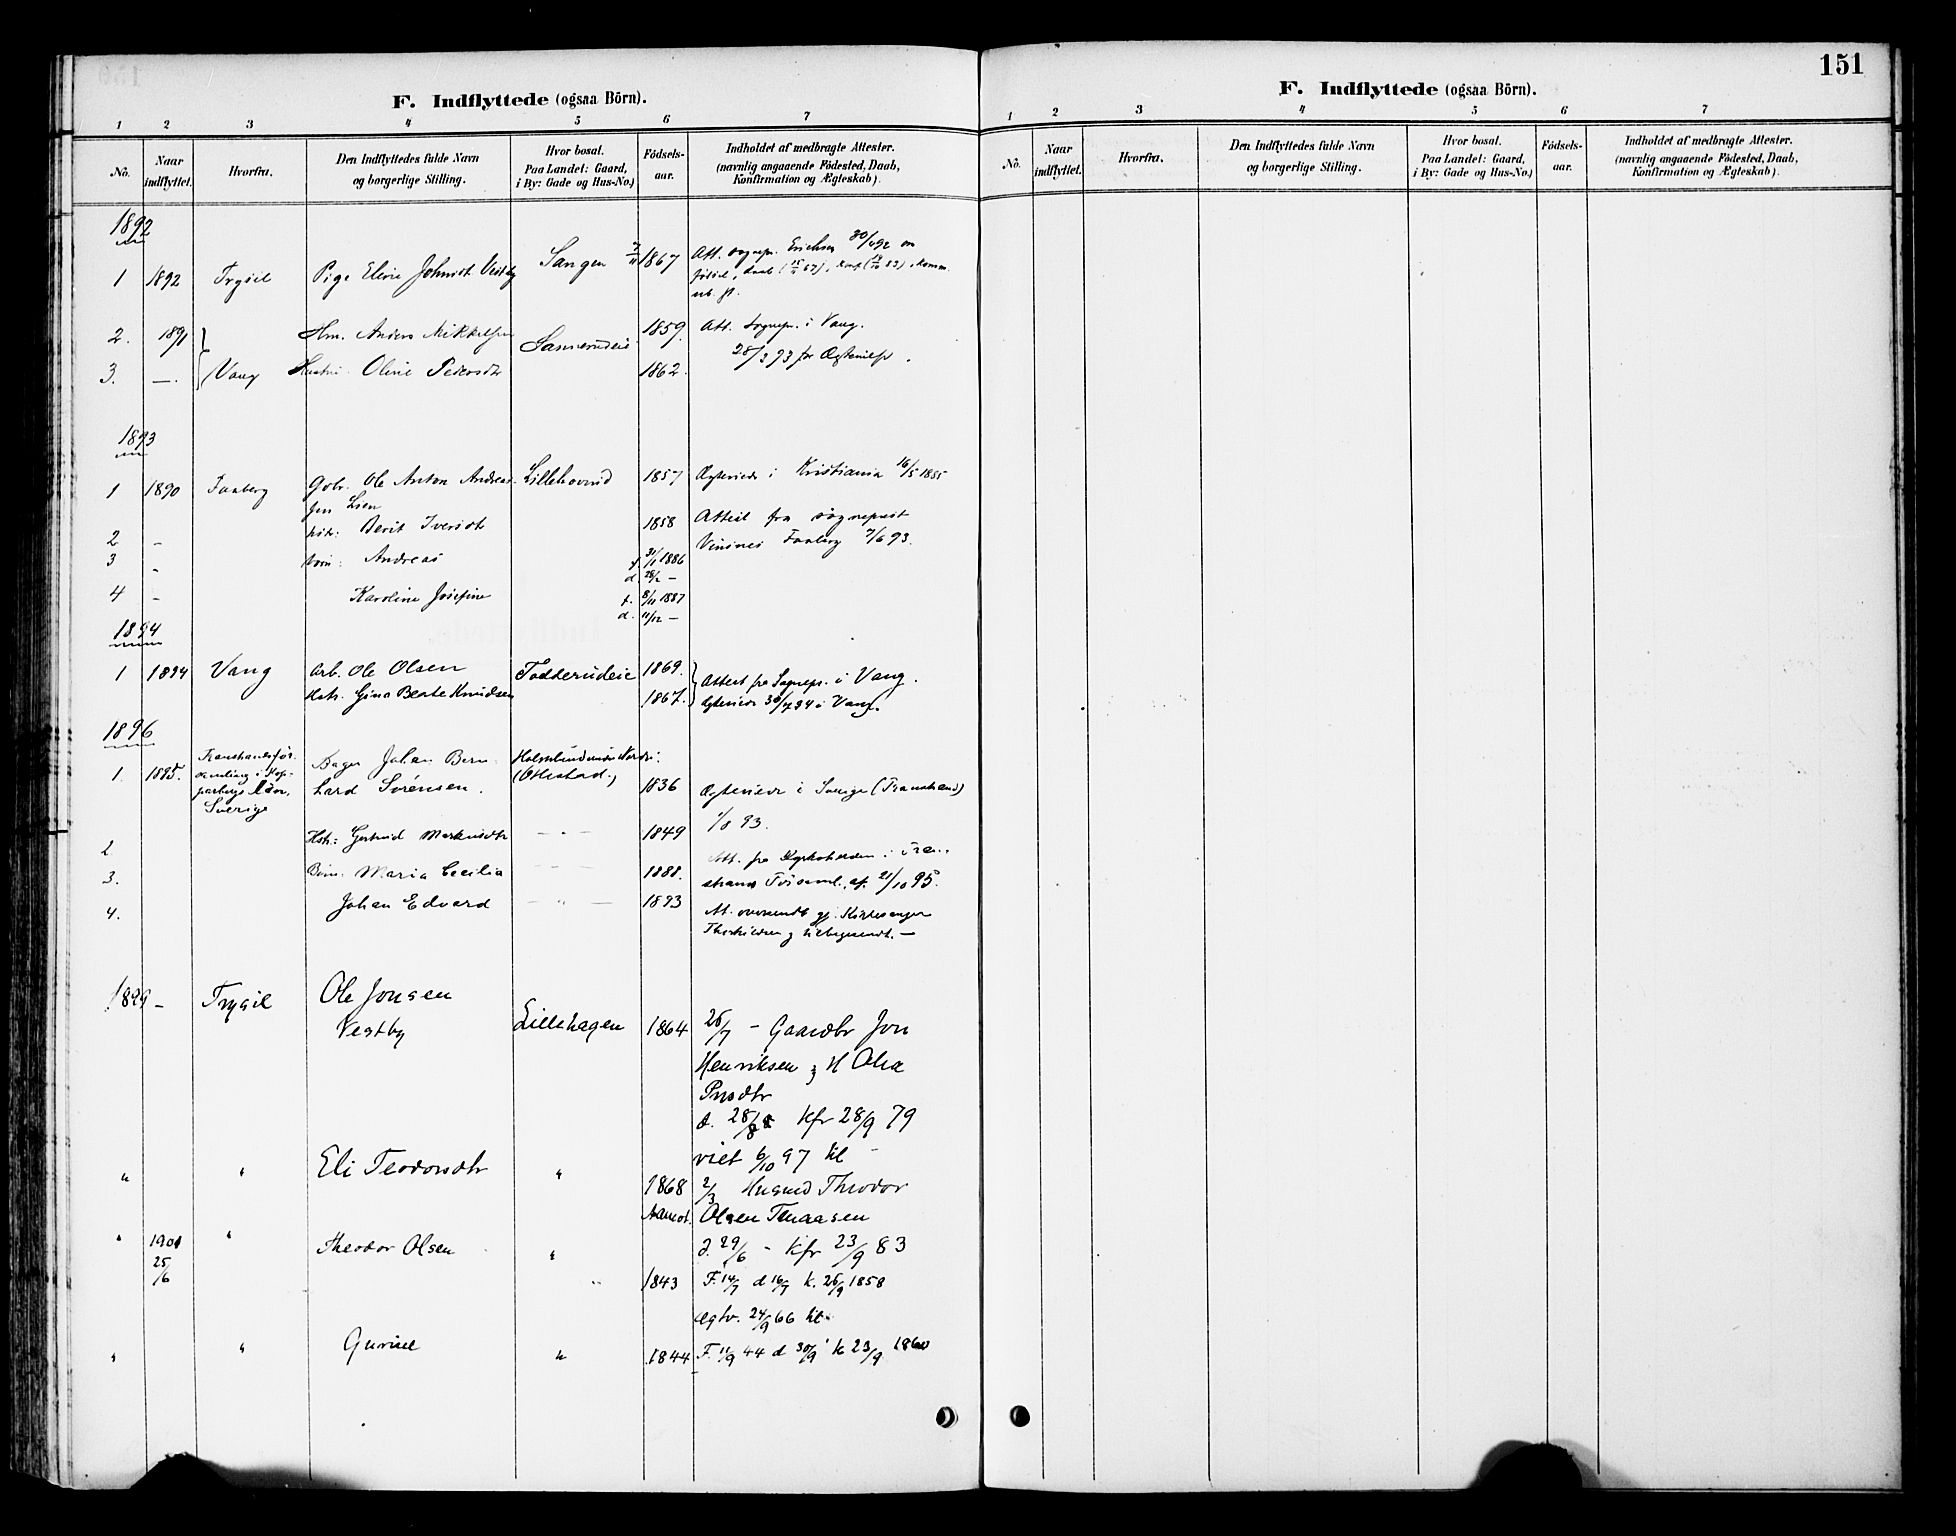 151
F. Indflyttede (ogsaa Börn).
1 2 3 4 5 6 7
No. Naar indflyttet. Hvorfra. Den Indflyttedes fulde Navn og borgerlige Stilling. Hvor bosat. Paa Landet: Gaard, i By: Gade og Hus-No.) Fødsels-aar. Indholdet af medbragte Attester. (navnlig angaaende Fødested, Daab, Konfirmation og Ægteskab).
1892
1 1892 Trysil Pige Eline Johnsdt Vestby Sangen 1867 Att. sognepr. Erichsen
2. 1891 Hm. Anders Mikkelsen Sannerudeie 1859. Att. Sognepr. i Vang.
3. — Vang Hustru Oline Pedersdtr 1862. 28/3 93 for Ægtevielse.
1893
1 1890 Faaberg Gbr. Ole Anton Andreas- Lillehovind 1857 Ægteviede i Kristiania 16/5 1885
sen Lien
2 - hstr: Berit Iversdt 1858 Attest fra sognepræst
Vinsnes Faaberg 7/6 93.
3 - Børn: Andreas f. 31/1 1886
d. 28/2 —
4 - Karoline Josefine f. 8/11 1887
d. 11/12 —
1894
1 1894 Vang Arb. Ole Olsen Todderudeie 1869. Attest fra Sognepr. i Vang.
Hstr. Gina Beate Knudsen 1867. Ægteviede 30/4 94 i Vang.
1896
1. 1895. Transtrandsför- Bager Johan Bern-
samling i Kop- (Ottestad.)
parbergs Län, hard Sörensen. 1836 Ægteviede i Sverige (Transtrand)
Sverige
1/8 93.
2 Hstr: Gertrud Markusdtr — " — 1849
Att. fra Kyrkoherden i Tran-
3. Børn: Maria Cecilia — — 1888. strands Församl. af 21/10 95.
4. Johan Edvard — " — 1893 At. oversendt gj. Kirkesanger
Thorkildsen & tilbagesendt. —
1899 - Trysil Ole Jonsen
Vestby Lillehagen 1864 26/7 - Gaardbr Jon
Henriksen & H Olea
d. 28/8 Kfr 28/9 79
viet 6/10 97 til
" " Eli Teodorsdtr " 1868 2/3 Husmd Theodor
Aamot. Olsen
d. 29/6 - Kfr 23/9 83
" 1901 " Theodor Olsen "
25/6
" 1843 F. 14/7 d 16/7 k. 26/9 1858
Ægtv. 24/9 66 til
" " Gurine " 1844 F. 11/9 44 d 30/9 k 23/9 1860
F. Indflyttede (ogsaa Börn).
1 2 3 4 5 6 7
No. Naar indflyttet. Hvorfra. Den Indflyttedes fulde Navn og borgerlige Stilling. Hvor bosat. Paa Landet: Gaard, i By: Gade og Hus-No.) Fødsels-aar. Indholdet af medbragte Attester. (navnlig angaaende Fødested, Daab, Konfirmation og Ægteskab).